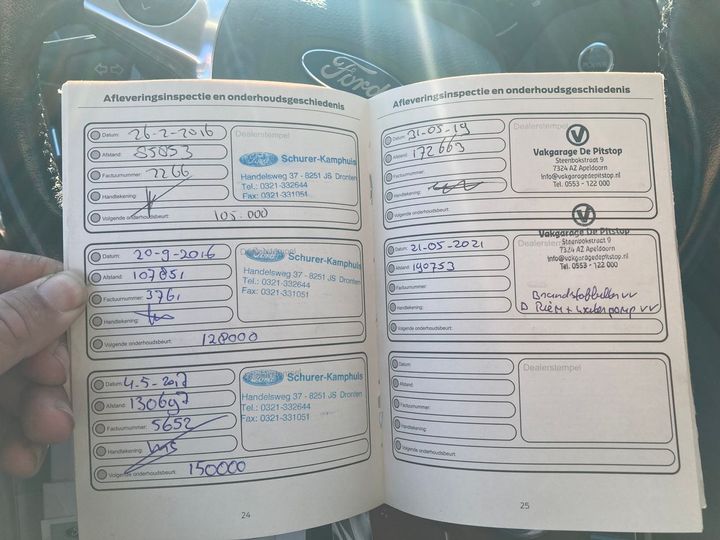 Ford
Afleveringsinspectie en onderhoudsgeschiedenis
Datum: 26-2-2016
Afstand: 85853
Factuurnummer: 2266
Handtekening:
Volgende onderhoudsbeurt: 105.000
Dealerstempel
Ford Schurer-Kamphuis
Handelsweg 37 - 8251 JS Dronten
Tel.: 0321-332644
Fax: 0321-331051
Datum: 20-9-2016
Afstand: 107851
Factuurnummer: 3761
Handtekening:
Volgende onderhoudsbeurt: 128000
Dealerstempel
Ford Schurer-Kamphuis
Handelsweg 37 - 8251 JS Dronten
Tel.: 0321-332644
Fax: 0321-331051
Datum: 4-5-2017
Afstand: 130697
Factuurnummer: 5652
Handtekening:
Volgende onderhoudsbeurt: 150000
Ford Schurer-Kamphuis
Handelsweg 37 - 8251 JS Dronten
Tel.: 0321-332644
Fax: 0321-331051
24
Afleveringsinspectie en onderhoudsgeschiedenis
Datum: 31-05-19
Afstand: 172663
Factuurnummer:
Handtekening:
Volgende onderhoudsbeurt:
Dealerstempel
Vakgarage De Pitstop
Steenbokstraat 9
7324 AZ Apeldoorn
info@vakgaragedepitstop.nl
Tel. 0553 - 122 000
Datum: 21-05-2021
Afstand: 190753
Factuurnummer:
Handtekening:
Volgende onderhoudsbeurt:
Vakgarage De Pitstop
Steenbokstraat 9
7324 AZ Apeldoorn
info@vakgaragedepitstop.nl
Tel. 0553 - 122 000
Brandstoffilter vv
D Riem + waterpomp vv
Datum:
Afstand:
Factuurnummer:
Handtekening:
Volgende onderhoudsbeurt:
Dealerstempel
25